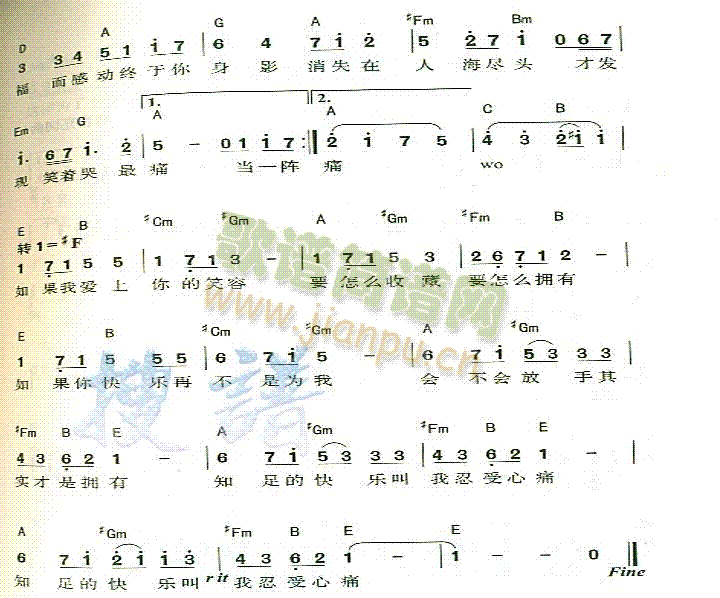 D A G A #Fm Bm
3 3 4 5 1 i 7 | 6 4 7 i 2 | 5 2 7 i 0 6 7 |
福 面感 动终 于你 身 影 消失在 人 海尽头 才发
1. 2.
Em G A A C B
i. 6 7 i. 2 | 5 - 0 1 i 7 :|| 2 i 7 5 | 4 3 2 #i i |
现 笑着哭 最痛 当一阵 痛 wo
E B #Cm #Gm A #Gm #Fm B
转1=#F
1 7 1 5 5 | 1 7 1 3 - | 1 7 1 5 3 | 2 6 7 1 2 - |
如 果我爱 上 你 的笑容 要 怎么收 藏 要怎么拥有
歌谱简谱网
www.jianpu.cn
E B #Cm #Gm A #Gm
1 7 1 5 5 5 | 6 7 i 5 - | 6 7 i 5 3 3 3 |
如 果你快 乐再 不 是为我 会 不会放 手其
搜谱
#Fm B E A #Gm #Fm B E
4 3 6 2 1 - | 6 7 i 5 3 3 3 | 4 3 6 2 1 - |
实才是拥有 知 足的快 乐叫 我忍受心痛
A #Gm #Fm B E E
6 7 i 2 i i 3 | 4 3 6 2 1 - | 1 - - 0 ||
知 足的快 乐叫 rit 我忍受心痛
Fine